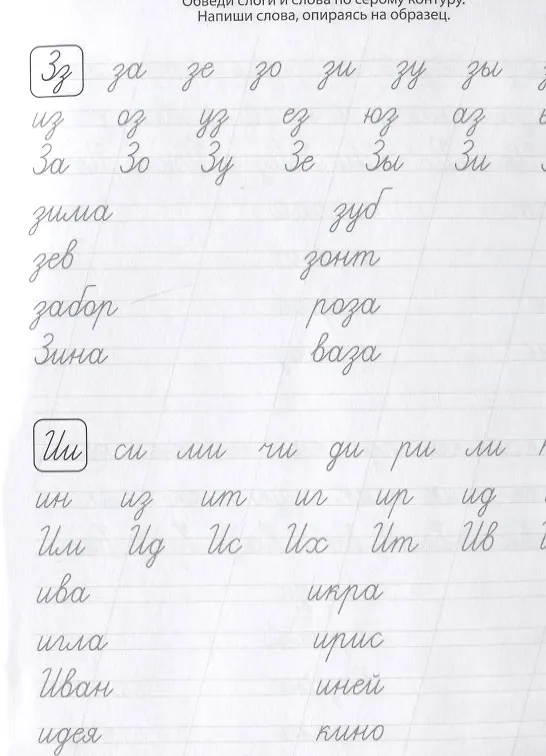 Обведи слоги и слова по серому контуру.
Напиши слова, опираясь на образец.
Зз за зе зо зи зу зы
из оз уз ез юз аз
За Зо Зу Зе Зы Зи
зима зуб
зев зонт
забор роза
Зина ваза
Ии си ми чи ди ри ли
ин из ит иг ир ид
Им Ид Ис Их Ит Ив
ива икра
игла ирис
Иван иней
идея кино